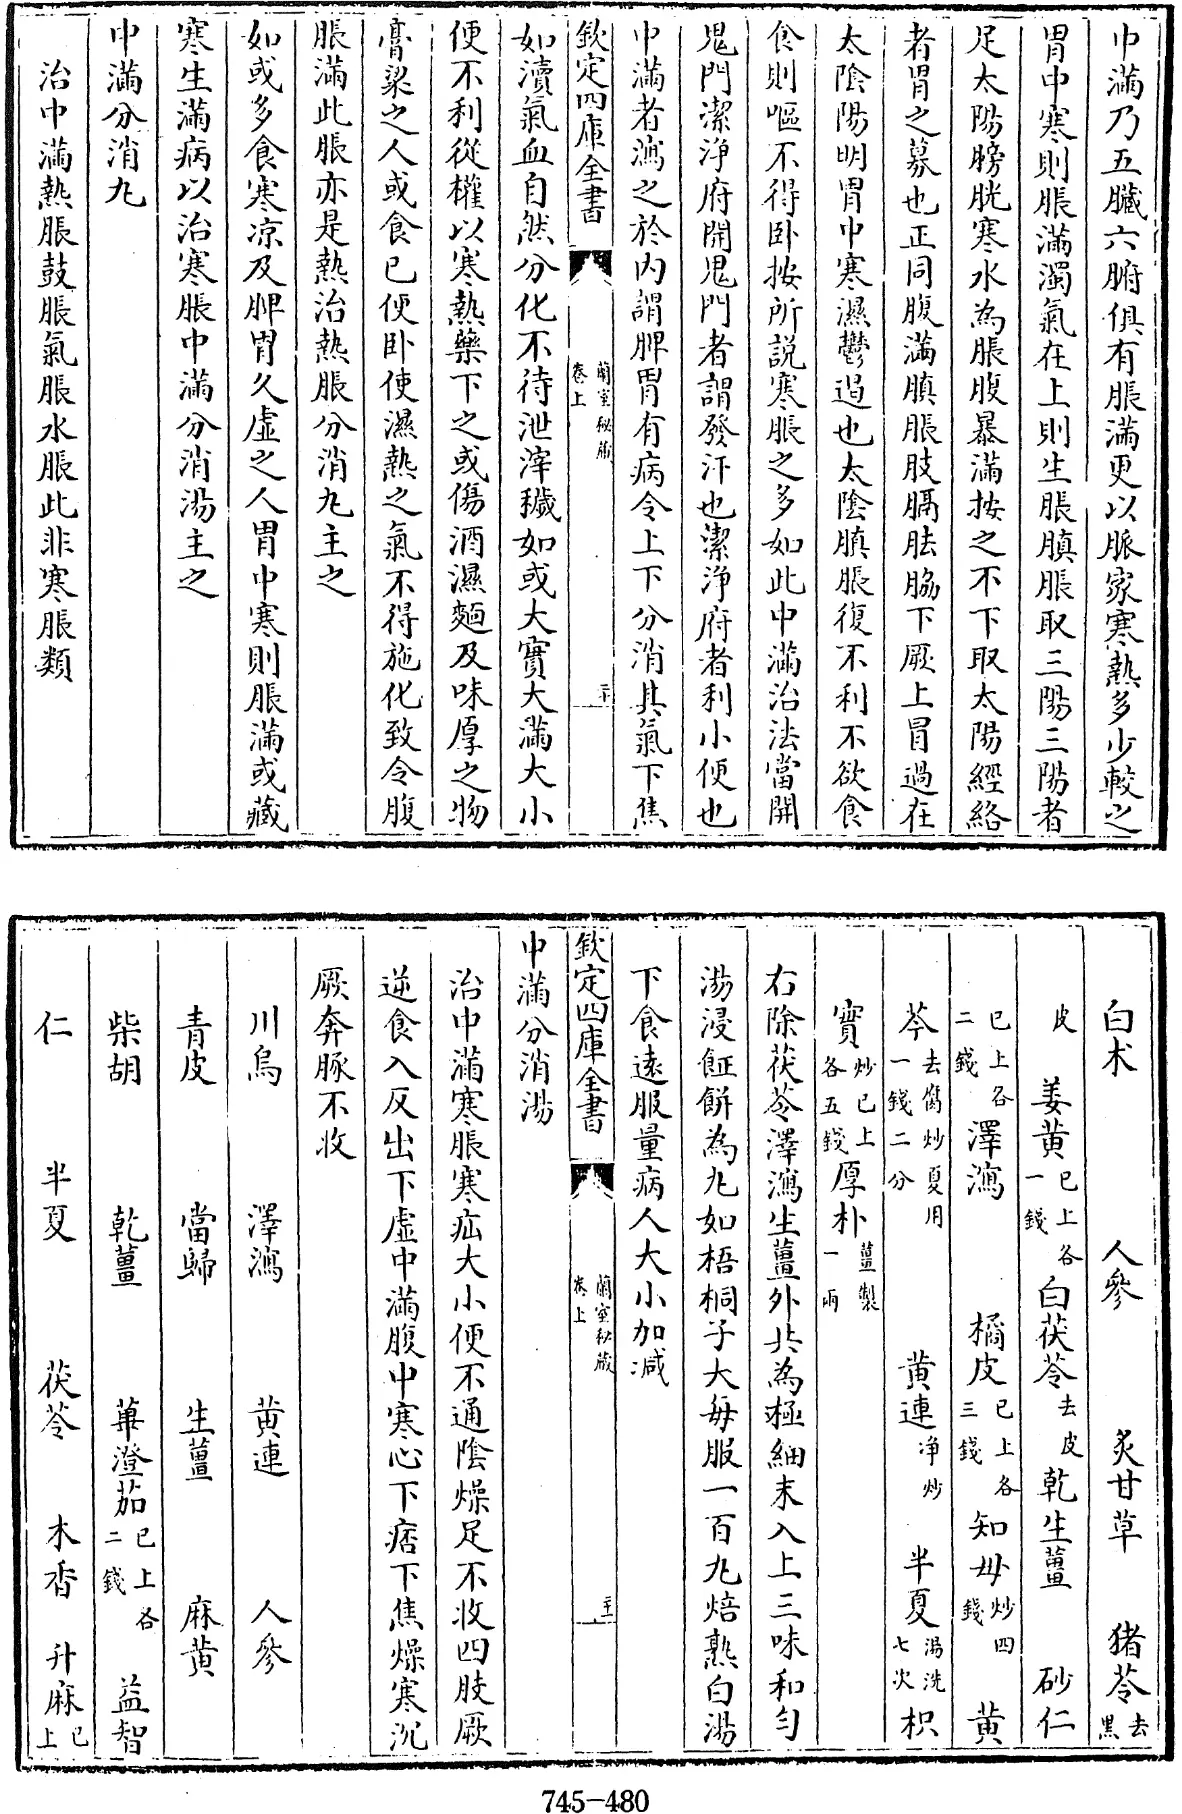 中滿乃五臟六腑俱有脹滿更以脈家寒熱多少較之
胃中寒則脹滿濁氣在上則生脹䐜脹取三陽三陽者
足太陽膀胱寒水為脹腹暴滿按之不下取太陽經絡
者胃之募也正同腹滿䐜脹肢膈胠脇下厥上冒過在
太陰陽明胃中寒濕鬱遏也太陰䐜脹復不利不欲食
食則嘔不得卧按所説寒脹之多如此中滿治法當開
鬼門潔淨府開鬼門者謂發汗也潔淨府者利小便也
中滿者瀉之於內謂脾胃有病令上下分消其氣下焦
欽定四庫全書 蘭室秘藏卷上 二十
如瀆氣血自然分化不待泄滓穢如或大實大滿大小
便不利從權以寒熱藥下之或傷酒濕麵及味厚之物
膏粱之人或食已便卧使濕熱之氣不得施化致令腹
脹滿此脹亦是熱治熱脹分消丸主之
如或多食寒凉及脾胃久虛之人胃中寒則脹滿或藏
寒生滿病以治寒脹中滿分消湯主之
中滿分消丸
治中滿熱脹鼓脹氣脹水脹此非寒脹類
白术 人參 炙甘草 猪苓去黑
皮 姜黄已上各一錢 白茯苓去皮 乾生薑 砂仁
已上各二錢 澤瀉 橘皮已上各三錢 知母炒四錢 黄
芩去腐炒夏用一錢二分 黄連淨炒 半夏湯洗七次 枳
實炒已上各五錢 厚朴薑製一兩
右除茯苓澤瀉生薑外共為極細末入上三味和勻
湯浸𩚑餅為丸如梧桐子大每服一百丸焙熟白湯
下食遠服量病人大小加減
欽定四庫全書 蘭室秘藏卷上 二十一
中滿分消湯
治中滿寒脹寒疝大小便不通陰燥足不收四肢厥
逆食入反出下虛中滿腹中寒心下痞下焦燥寒沉
厥奔豚不收
川烏 澤瀉 黄連 人參
青皮 當歸 生薑 麻黄
柴胡 乾薑 蓽澄茄已上各二錢 益智
仁 半夏 茯苓 木香 升麻已上
745-480